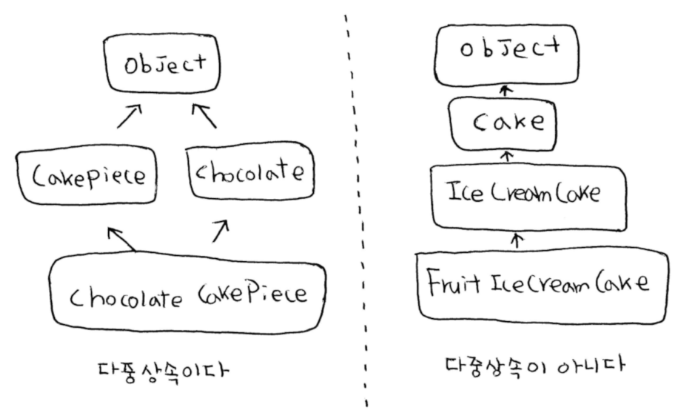 Object
CakePiece
Chocolate
Chocolate CakePiece
다중상속이다
Object
Cake
IceCreamCake
Fruit IceCreamCake
다중상속이 아니다